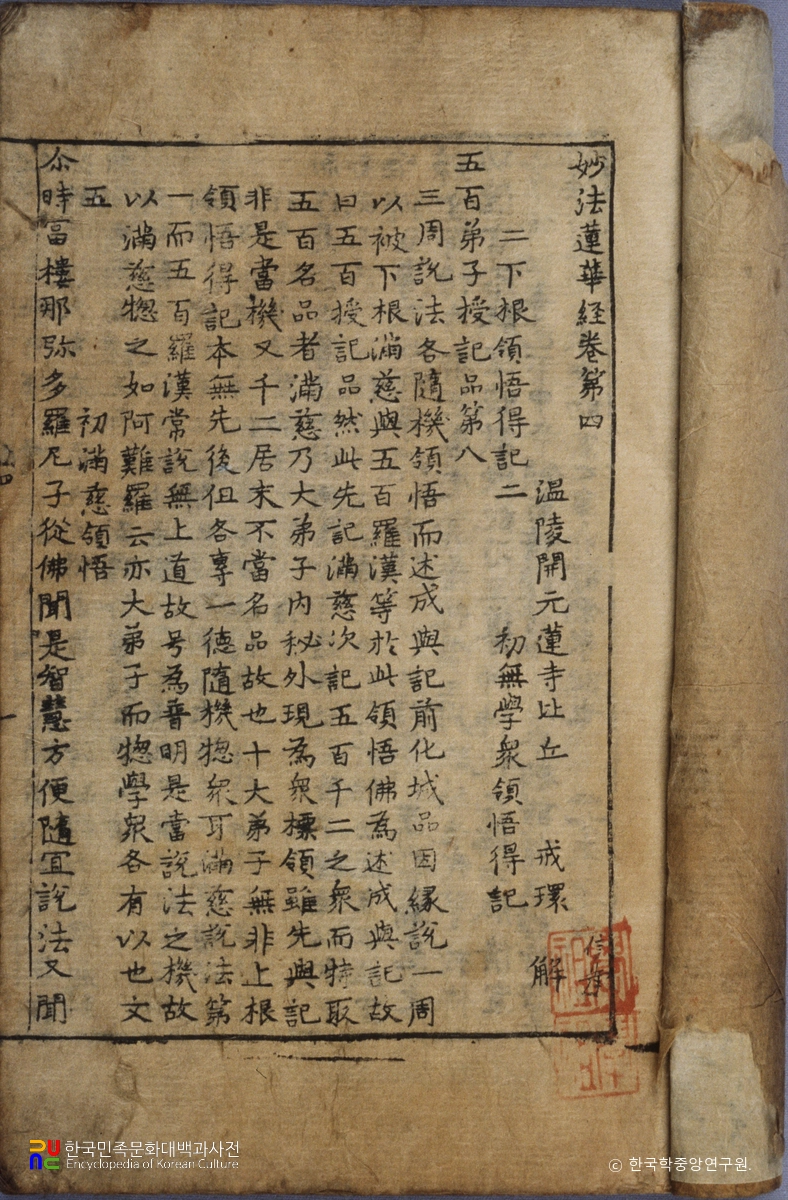 妙法蓮華經卷第四
溫陵開元蓮寺比丘 戒環 解
二下根領悟得記二 初無學衆領悟得記
五百弟子授記品第八
三周說法各隨機領悟而述成與記前化城品因緣說一周
以被下根滿慈與五百羅漢等於此領悟佛為述成與記故
曰五百授記品然此先記滿慈次記五百千二之衆而特取
五百名品者滿慈乃大弟子內秘外現為衆標領雖先與記
非是當機又千二居末不當名品故也十大弟子無非上根
領悟得記本無先後但各專一德隨機惣衆耳滿慈說法第
一而五百羅漢常說無上道故号為普明是當說法之機故
以滿慈惣之如阿難羅云亦大弟子而惣學衆各有以也文
五 初滿慈領悟
尒時富樓那弥多羅尼子從佛聞是智慧方便隨宜說法又聞
한국민족문화대백과사전
Encyclopedia of Korean Culture
© 한국학중앙연구원.